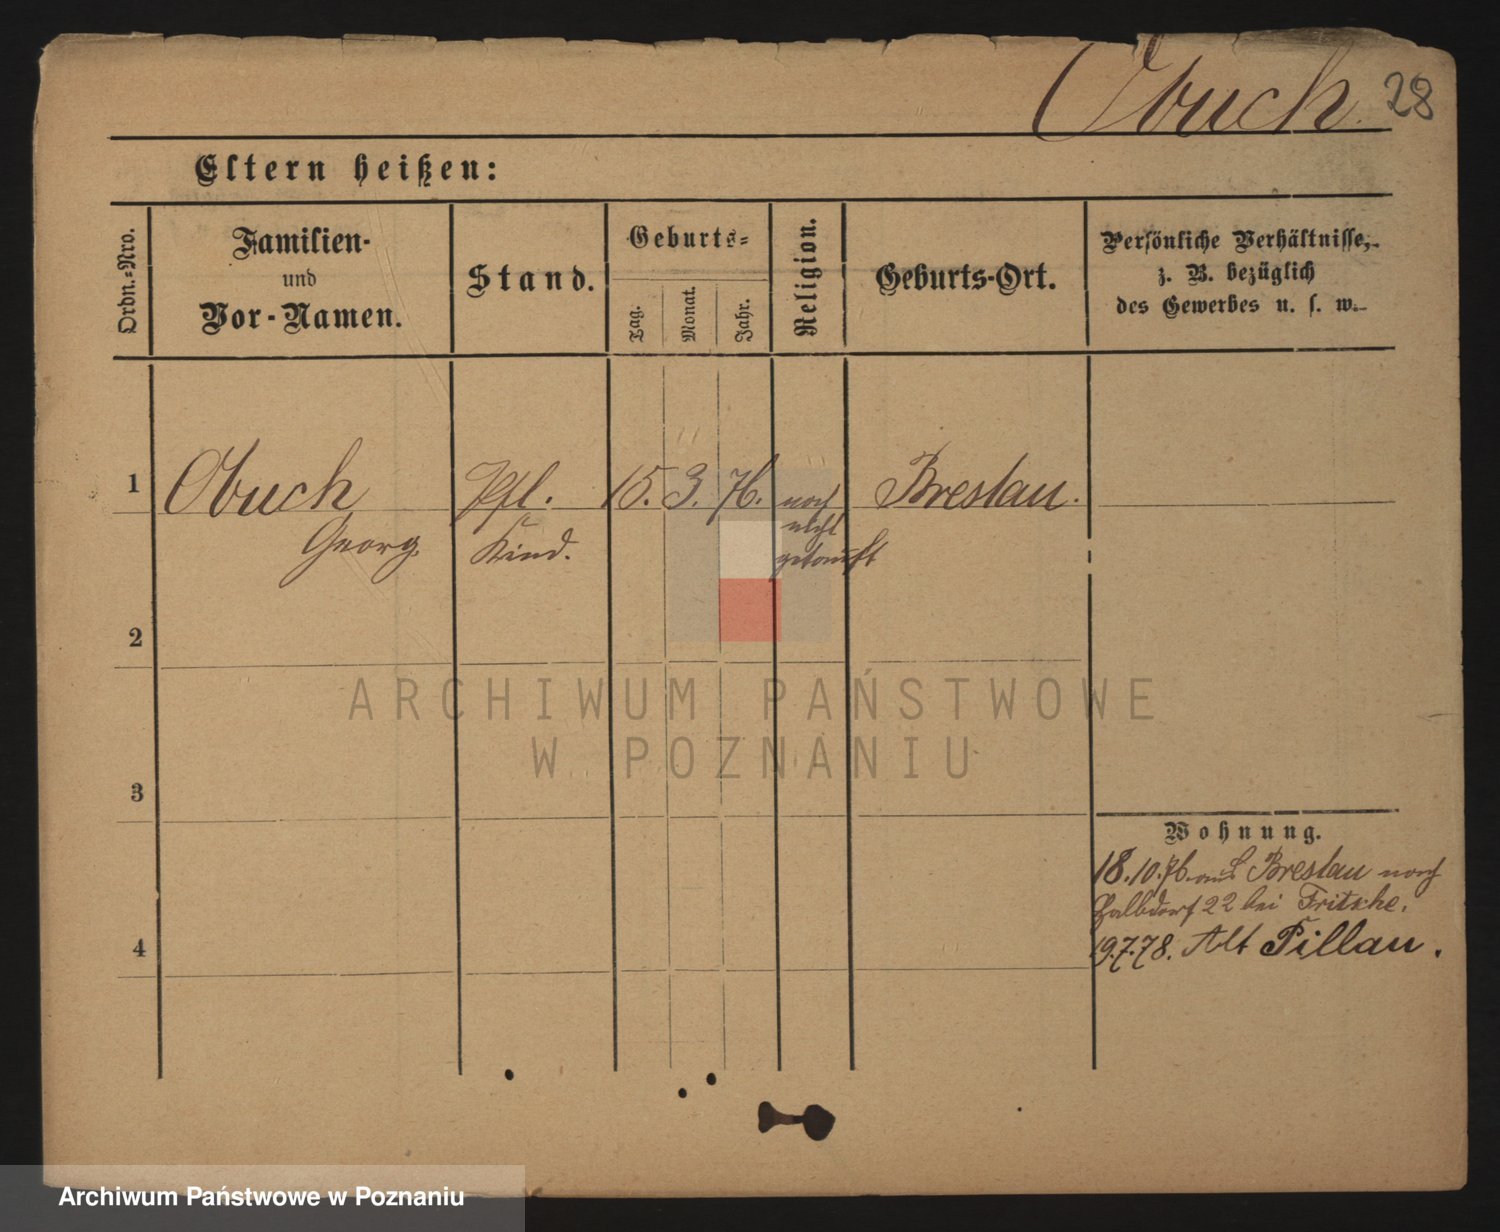 Obuch. 28
Eltern heißen:
Ordn.=Nro.
Familien-
und
Vor-Namen.
Stand.
Geburts=
Tag.
Monat.
Jahr.
Religion.
Geburts-Ort.
Persönliche Verhältnisse,
z. B. bezüglich
des Gewerbes u. s. w.
1 Obuch Pfl. 15. 3. 76. noch Breslau.
nicht
Georg Kind. getauft
2
ARCHIWUM PAŃSTWOWE
W POZNANIU
3
Wohnung.
18.10.76. aus Breslau nach
Halbdorf 22 bei Fritsche.
4 19.7.78. Alt Pillau.
Archiwum Państwowe w Poznaniu